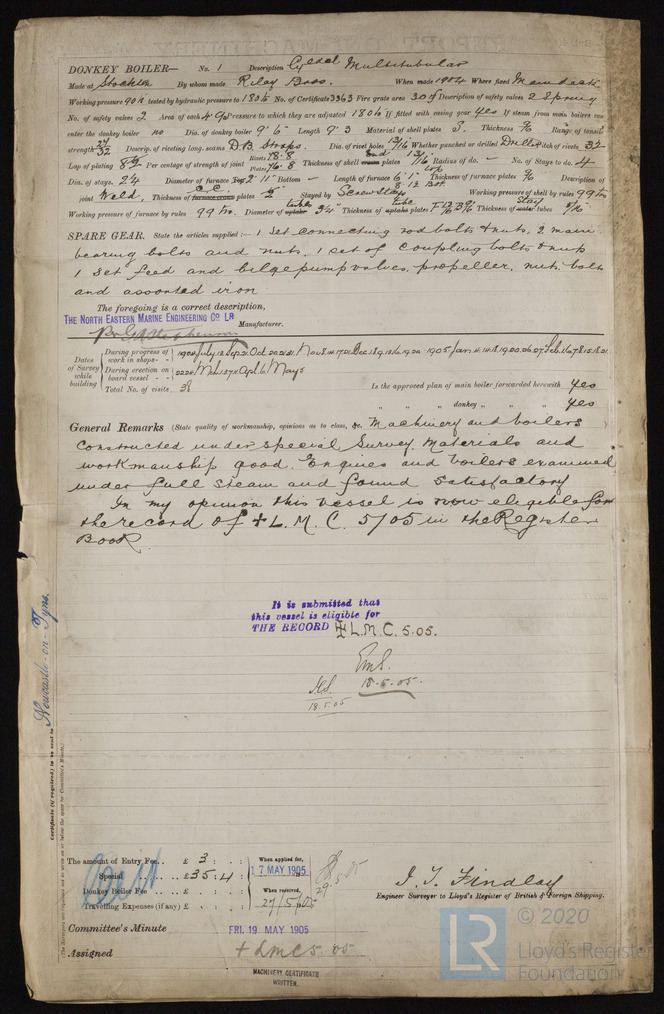 DONKEY BOILER— No. 1 Description Cyldcal Multitubular
Made at Stockton By whom made Riley Bros. When made 1904 Where fixed Main deck
Working pressure 90 tested by hydraulic pressure to 180 No. of Certificate 3363 Fire grate area 30 Description of safety valves 2 Spring
No. of safety valves 2 Area of each Pressure to which they are adjusted If fitted with easing gear yes If steam from main boilers can
enter the donkey boiler no Dia. of donkey boiler 9' 6" Length 9' 3 Material of shell plates S. Thickness Range of tensile
strength 27/32 Descrip. of riveting long. seams D.B. Straps. Dia. of rivet holes 13/16 Whether punched or drilled Drilled Pitch of rivets
Lap of plating Per centage of strength of joint Rivets 78.8 Plates 76.8 Thickness of shell crown plates Radius of do. — No. of Stays to do. 4
Dia. of stays. Diameter of furnace Top 2' 11" Bottom — Length of furnace 6' 1" Thickness of furnace plates Description of
joint Weld, Thickness of furnace crown plates Stayed by Screw Stays Working pressure of shell by rules 99
Working pressure of furnace by rules 99 Diameter of uptake Thickness of uptake plates Thickness of water tubes
SPARE GEAR. State the articles supplied:— 1 Set connecting rod bolts & nuts, 2 main
bearing bolts and nuts, 1 set of coupling bolts & nuts
1 set feed and bilge pump valves, propeller, nuts, bolts
and assorted iron
The foregoing is a correct description,
THE NORTH EASTERN MARINE ENGINEERING CO. LD Manufacturer.
Dates of Survey while building
During progress of work in shops - -
During erection on board vessel - -
Total No. of visits 38
Is the approved plan of main boiler forwarded herewith yes
" " " donkey " " " yes
General Remarks (State quality of workmanship, opinions as to class, &c. Machinery and boilers
constructed under special Survey. Materials and
workmanship good. Engines and boilers examined
under full steam and found satisfactory
In my opinion this vessel is now eligible for
the record of + L. M. C. 5/05 in the Register
Book.
It is submitted that
this vessel is eligible for
THE RECORD + L.M.C. 5.05.
18.5.05.
18.5.05
Certificate (if required) to be sent to Newcastle-on-Tyne.
The amount of Entry Fee. . £ 3 : :
Special . . . . £ 35 : 4 :
Donkey Boiler Fee . . . . £ : :
Travelling Expenses (if any) £ : :
When applied for,
17 MAY 1905
When received,
27/5/05
29.5.05
J. T. Findlay
Engineer Surveyor to Lloyd's Register of British & Foreign Shipping.
Committee's Minute FRI. 19 MAY 1905
Assigned + LMC 5.05
MACHINERY CERTIFICATE
WRITTEN.
© 2020
LR
Lloyd's Register
Foundation